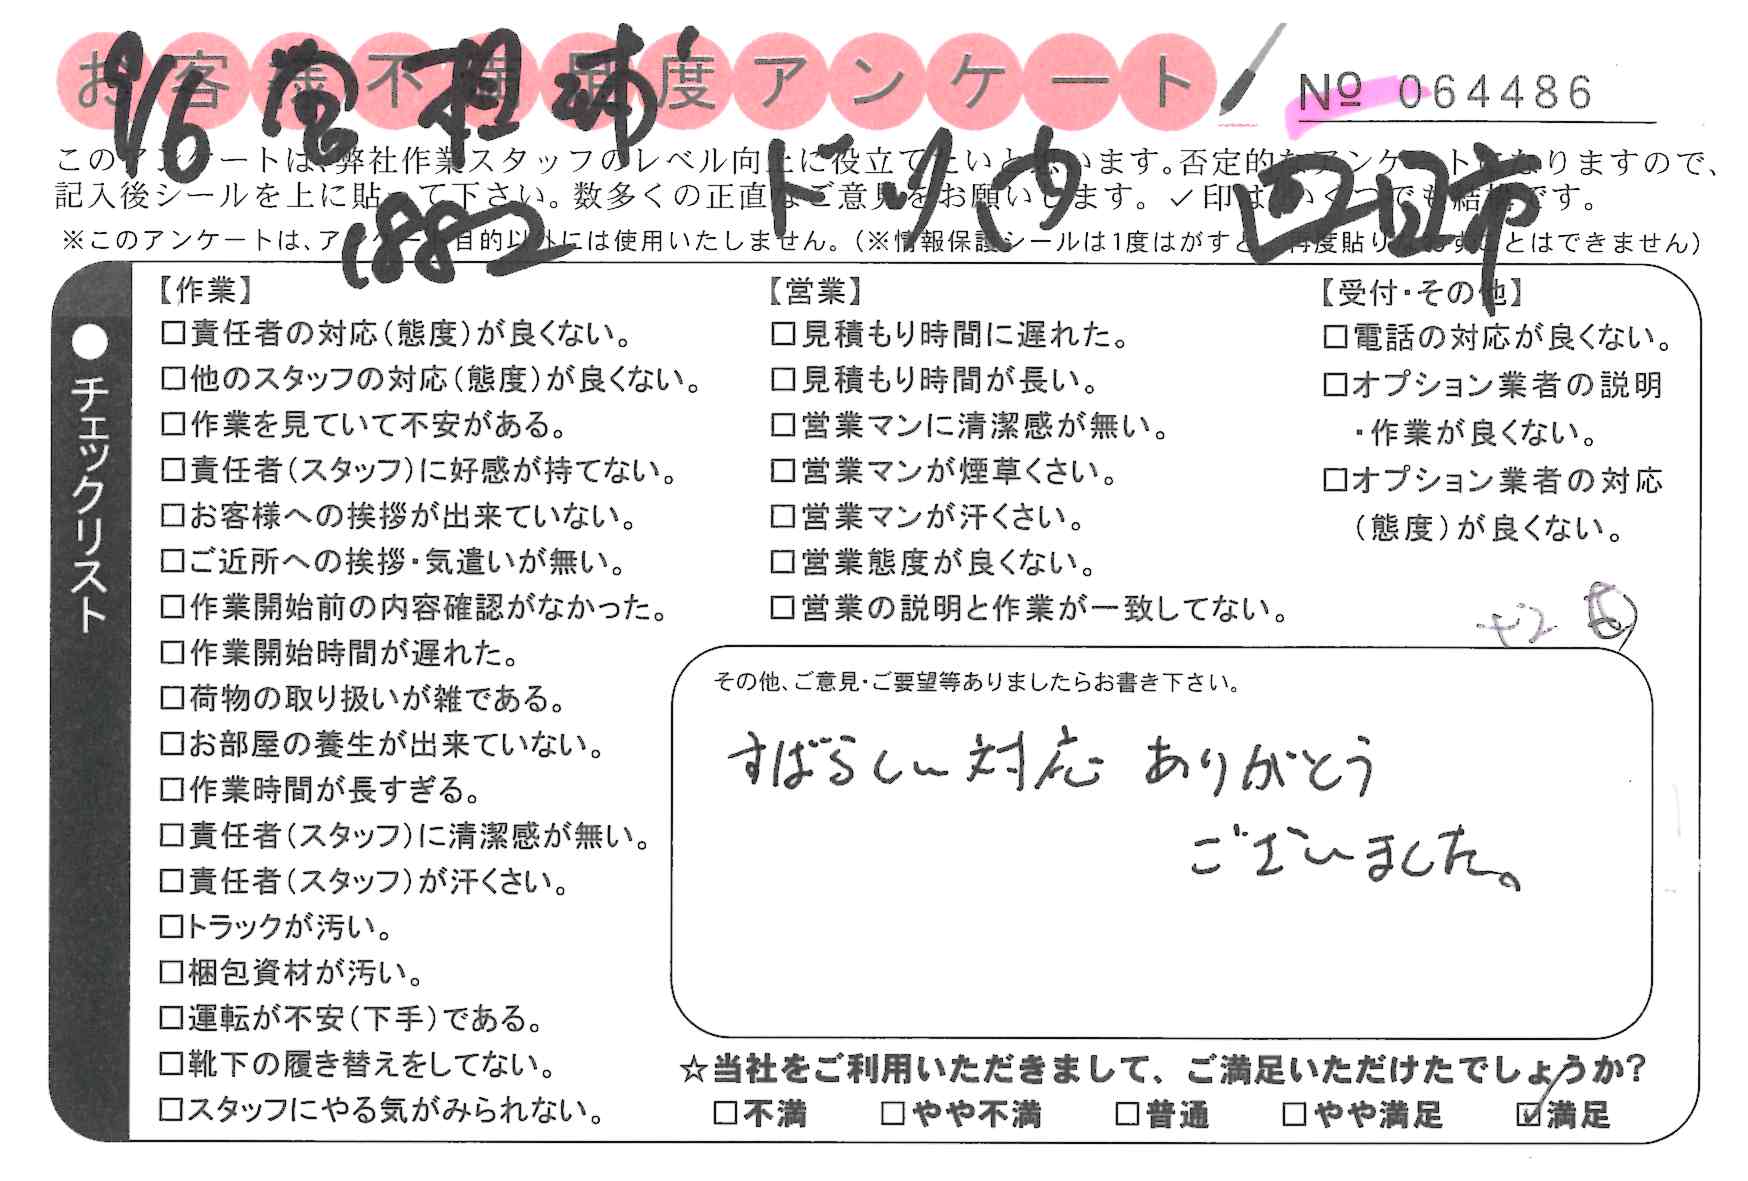 お客様不満足度アンケート
№ 064486
9/6
1882
四日市
このアンケートは、弊社作業スタッフのレベル向上に役立てたいと思います。否定的なアンケートになりますので、
記入後シールを上に貼って下さい。数多くの正直なご意見をお願いします。✓印はいくつでも結構です。
※このアンケートは、アンケート目的以外には使用いたしません。(※情報保護シールは1度はがすと、再度貼りなおすことはできません)
●チェックリスト
【作業】
□責任者の対応(態度)が良くない。
□他のスタッフの対応(態度)が良くない。
□作業を見ていて不安がある。
□責任者(スタッフ)に好感が持てない。
□お客様への挨拶が出来ていない。
□ご近所への挨拶・気遣いが無い。
□作業開始前の内容確認がなかった。
□作業開始時間が遅れた。
□荷物の取り扱いが雑である。
□お部屋の養生が出来ていない。
□作業時間が長すぎる。
□責任者(スタッフ)に清潔感が無い。
□責任者(スタッフ)が汗くさい。
□トラックが汚い。
□梱包資材が汚い。
□運転が不安(下手)である。
□靴下の履き替えをしてない。
□スタッフにやる気がみられない。
【営業】
□見積もり時間に遅れた。
□見積もり時間が長い。
□営業マンに清潔感が無い。
□営業マンが煙草くさい。
□営業マンが汗くさい。
□営業態度が良くない。
□営業の説明と作業が一致してない。
【受付・その他】
□電話の対応が良くない。
□オプション業者の説明
・作業が良くない。
□オプション業者の対応
(態度)が良くない。
+2 ⑤
その他、ご意見・ご要望等ありましたらお書き下さい。
すばらしい対応 ありがとう
ございました。
☆当社をご利用いただきまして、ご満足いただけたでしょうか?
□不満 □やや不満 □普通 □やや満足 ☑満足